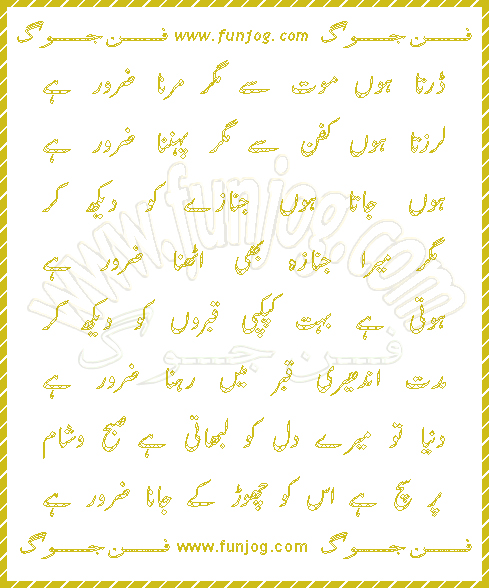 فن جوگ www.funjog.com فن جوگ
ڈرتا ہوں موت سے مگر مرنا ضرور ہے
لرزتا ہوں کفن سے مگر پہننا ضرور ہے
ہوں جاتا ہوں جنازے کو دیکھ کر
مگر میرا جنازہ بھی اٹھنا ضرور ہے
ہوتی ہے بہت کپکپی قبروں کو دیکھ کر
مدت اندھیری قبر میں رہنا ضرور ہے
دنیا تو میرے دل کو لبھاتی ہے صبح وشام
پر سچ ہے اس کو چھوڑ کے جانا ضرور ہے
فن جوگ www.funjog.com فن جوگ
www.funjog.com
فن جوگ